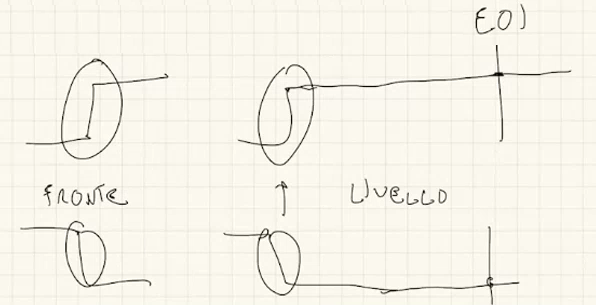 EOI
FRONTE
LIVELLO